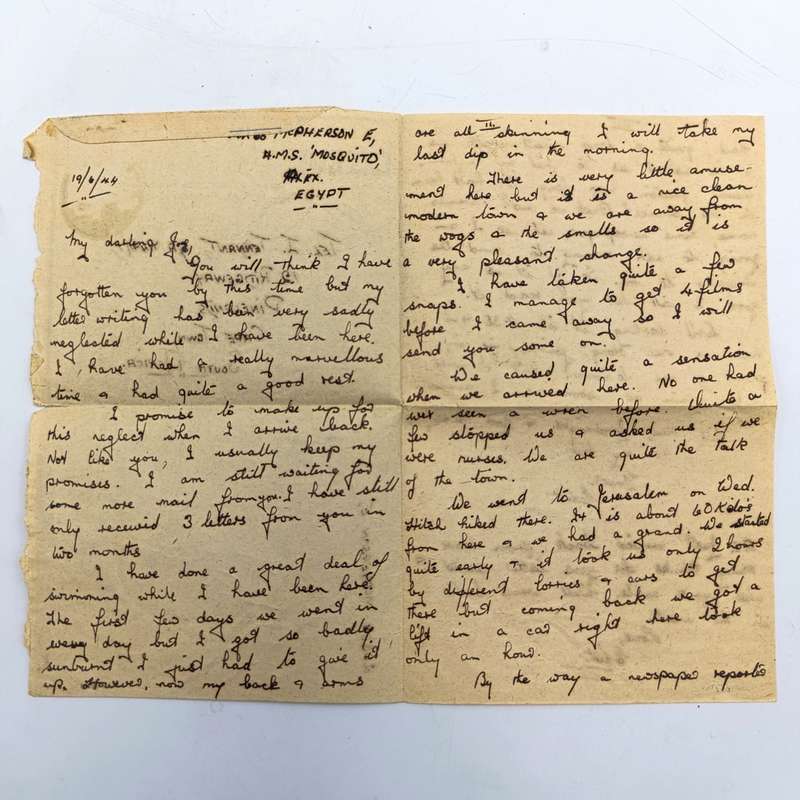 McPHERSON E,
H.M.S. 'MOSQUITO',
ALEX.
EGYPT
19/6/44
My darling Joy,
You will think I have
forgotten you by this time but my
letter writing has been very sadly
neglected while I have been here.
I have had a really marvellous
time & had quite a good rest.
I promise to make up for
this neglect when I arrive back.
Not like you, I usually keep my
promises. I am still waiting for
some more mail from you. I have still
only received 3 letters from you in
two months
I have done a great deal of
swimming while I have been here.
The first few days we went in
every day but I got so badly
sunburnt I just had to give it
up. However, now my back & arms
are all skinning I will take my
last dip in the morning.
There is very little amuse-
ment here but it is a nice clean
modern town & we are away from
the wogs & the smells so it is
a very pleasant change.
I have taken quite a few
snaps. I manage to get 4 films
before I came away so I will
send you some on.
We caused quite a sensation
when we arrived here. No one had
ever seen a wren before. Quite a
few stopped us & asked us if we
were nurses. We are quite the talk
of the town.
We went to Jerusalem on Wed.
Hitch hiked there. It is about 60 Kilo's
from here & we had a grand. We started
quite early & it took us only 2 hours
by different lorries & cars to get
there but coming back we got a
lift in a car right here took
only an hour.
By the way a newspaper reporter